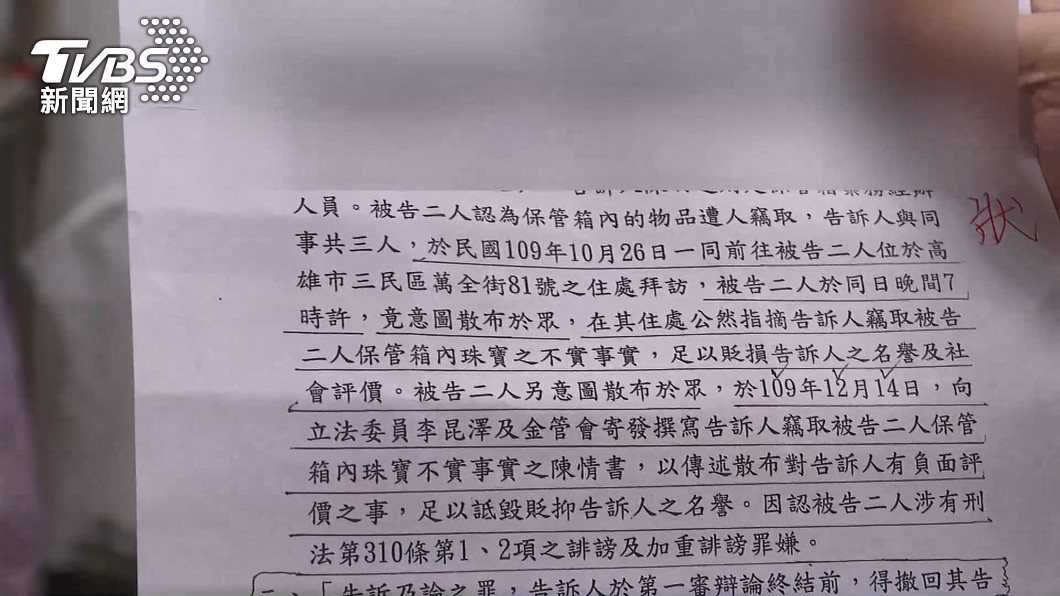 TVBS
新聞網
人員。被告二人認為保管箱內的物品遭人竊取，告訴人與同
狀
事共三人，於民國109年10月26日一同前往被告二人位於高
雄市三民區萬全街81號之住處拜訪，被告二人於同日晚間7
時許，竟意圖散布於眾，在其住處公然指摘告訴人竊取被告
二人保管箱內珠寶之不實事實，足以貶損告訴人之名譽及社
會評價。被告二人另意圖散布於眾，於109年12月14日，向
立法委員李昆澤及金管會寄發撰寫告訴人竊取被告二人保管
箱內珠寶不實事實之陳情書，以傳述散布對告訴人有負面評
價之事，足以詆毀貶抑告訴人之名譽。因認被告二人涉有刑
法第310條第1、2項之誹謗及加重誹謗罪嫌。
二、「告訴乃論之罪，告訴人於第一審辯論終結前，得撤回其告